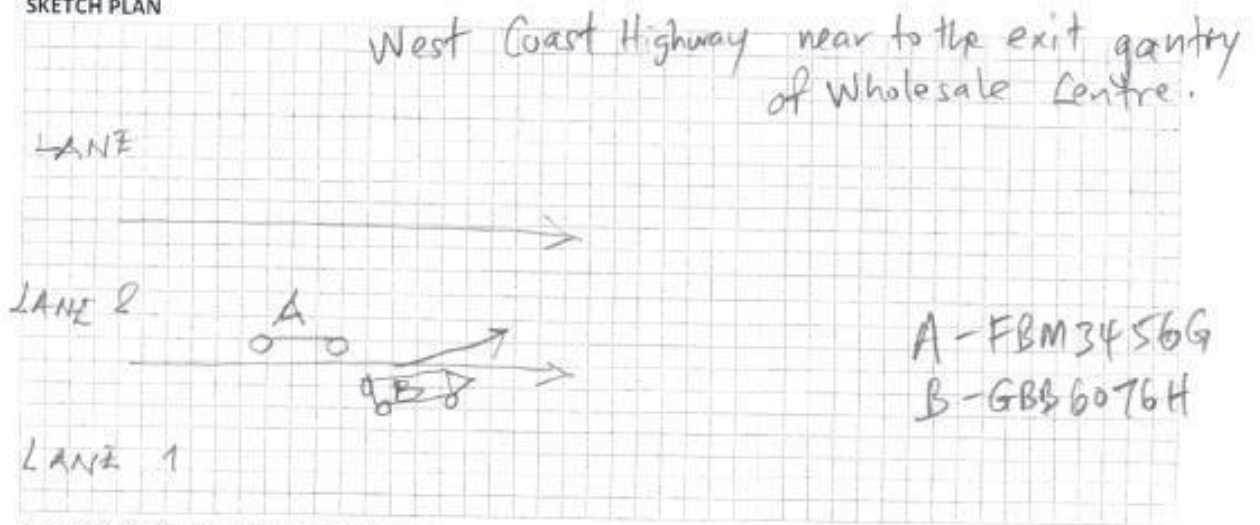 SKETCH PLAN
West Coast Highway near to the exit gantry
of Wholesale Centre.
LANE
LANE 2
A
A - FBM3456G
B
B - GBB6076H
LANE 1